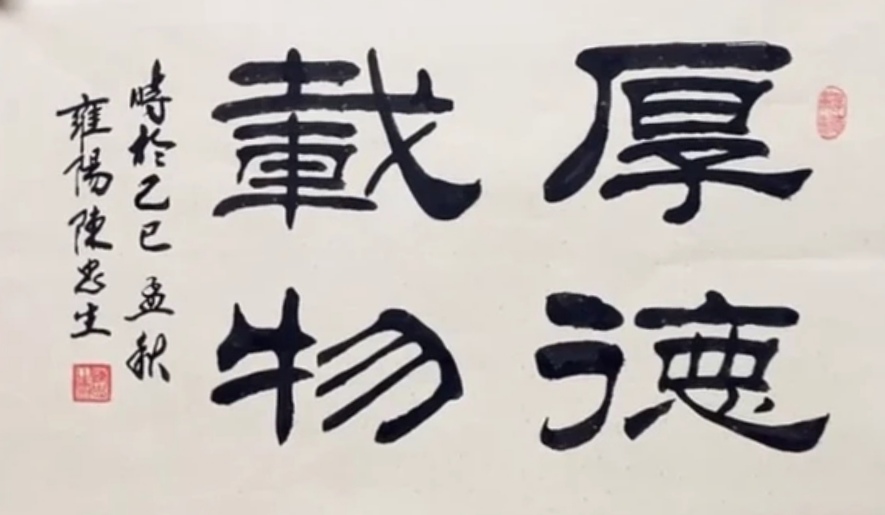 厚德
載物
時於乙巳孟秋
雍陽陳忠生